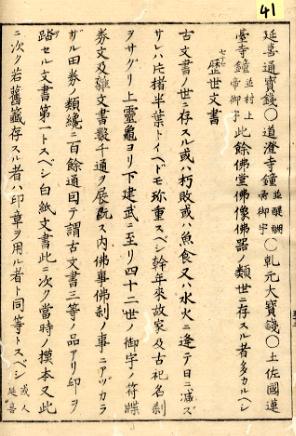 41
延喜通寶錢〇道澄寺鐘 並醍醐帝御宇 〇乾元大寶錢〇土佐國蓮
臺寺鐘 並村上帝御宇 此餘佛堂佛像佛器ノ類世ニ存スル者多カルヘシ
歴世文書
古文書ノ世ニ存スル或ハ朽敗或ハ魚食又ハ水火ニ逢テ日ニ滅ズ
サレハ片楮半葉トイヘドモ珎重スベシ幹年來故家及古祀名刹
ヲサグリ上靈龜ヨリ下建武ニ至リ四十二世ノ御宇ノ符牒
券文及雜文書數千通ヲ展玩ス内佛事佛刹ノ事ニアツカラ
ザル田券ノ類纔ニ百餘道因テ謂古文書三等ノ品アリ印ヲ
踏セル文書第一トスベシ白紙文書此ニ次ク當時ノ模本又此
ニ次ク若舊籤存スル者ハ印章ヲ用ル者ト同等トスベシ 或人延喜